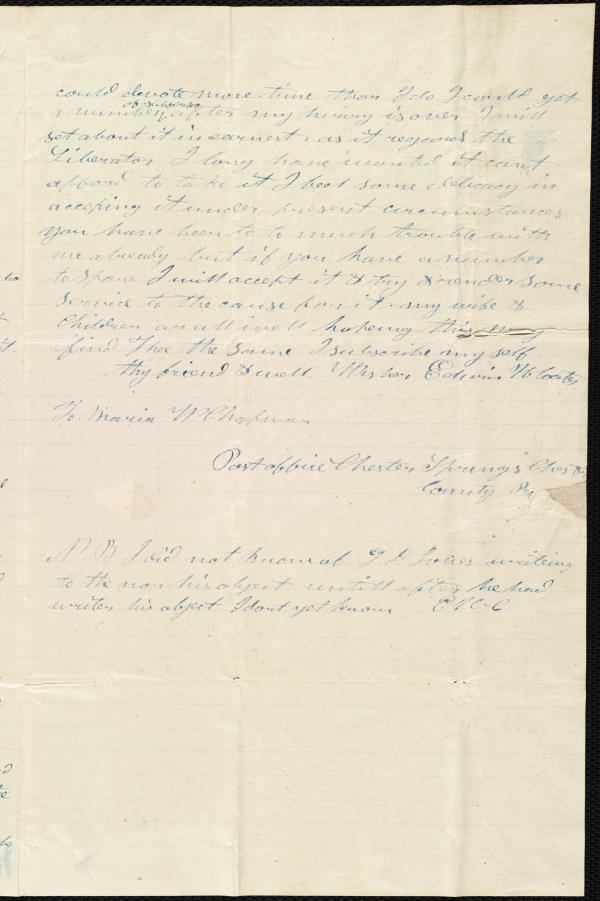 could devote more time than I do I could get
a number of subscribers after my hurry is over I will
set about it in earnest. as it regards the
Liberator I long have wanted it cant
afford to take it I feel some delicacy in
accepting it under present circumstances
you have been to to much trouble with
me already but if you have a number
to spare I will accept it & try & render some
service to the cause for it. my wife &
Children ar all well hopeing this may
find Thee the Same I subscribe my self
thy friend & well. Wisher Edwin H Coates
To Maria W Chapman
Postoffice Chester Springs Chester
County Pa
N. B I did not know of writeing
to the nor his object untill after he had
writen his object I dont yet know E H C